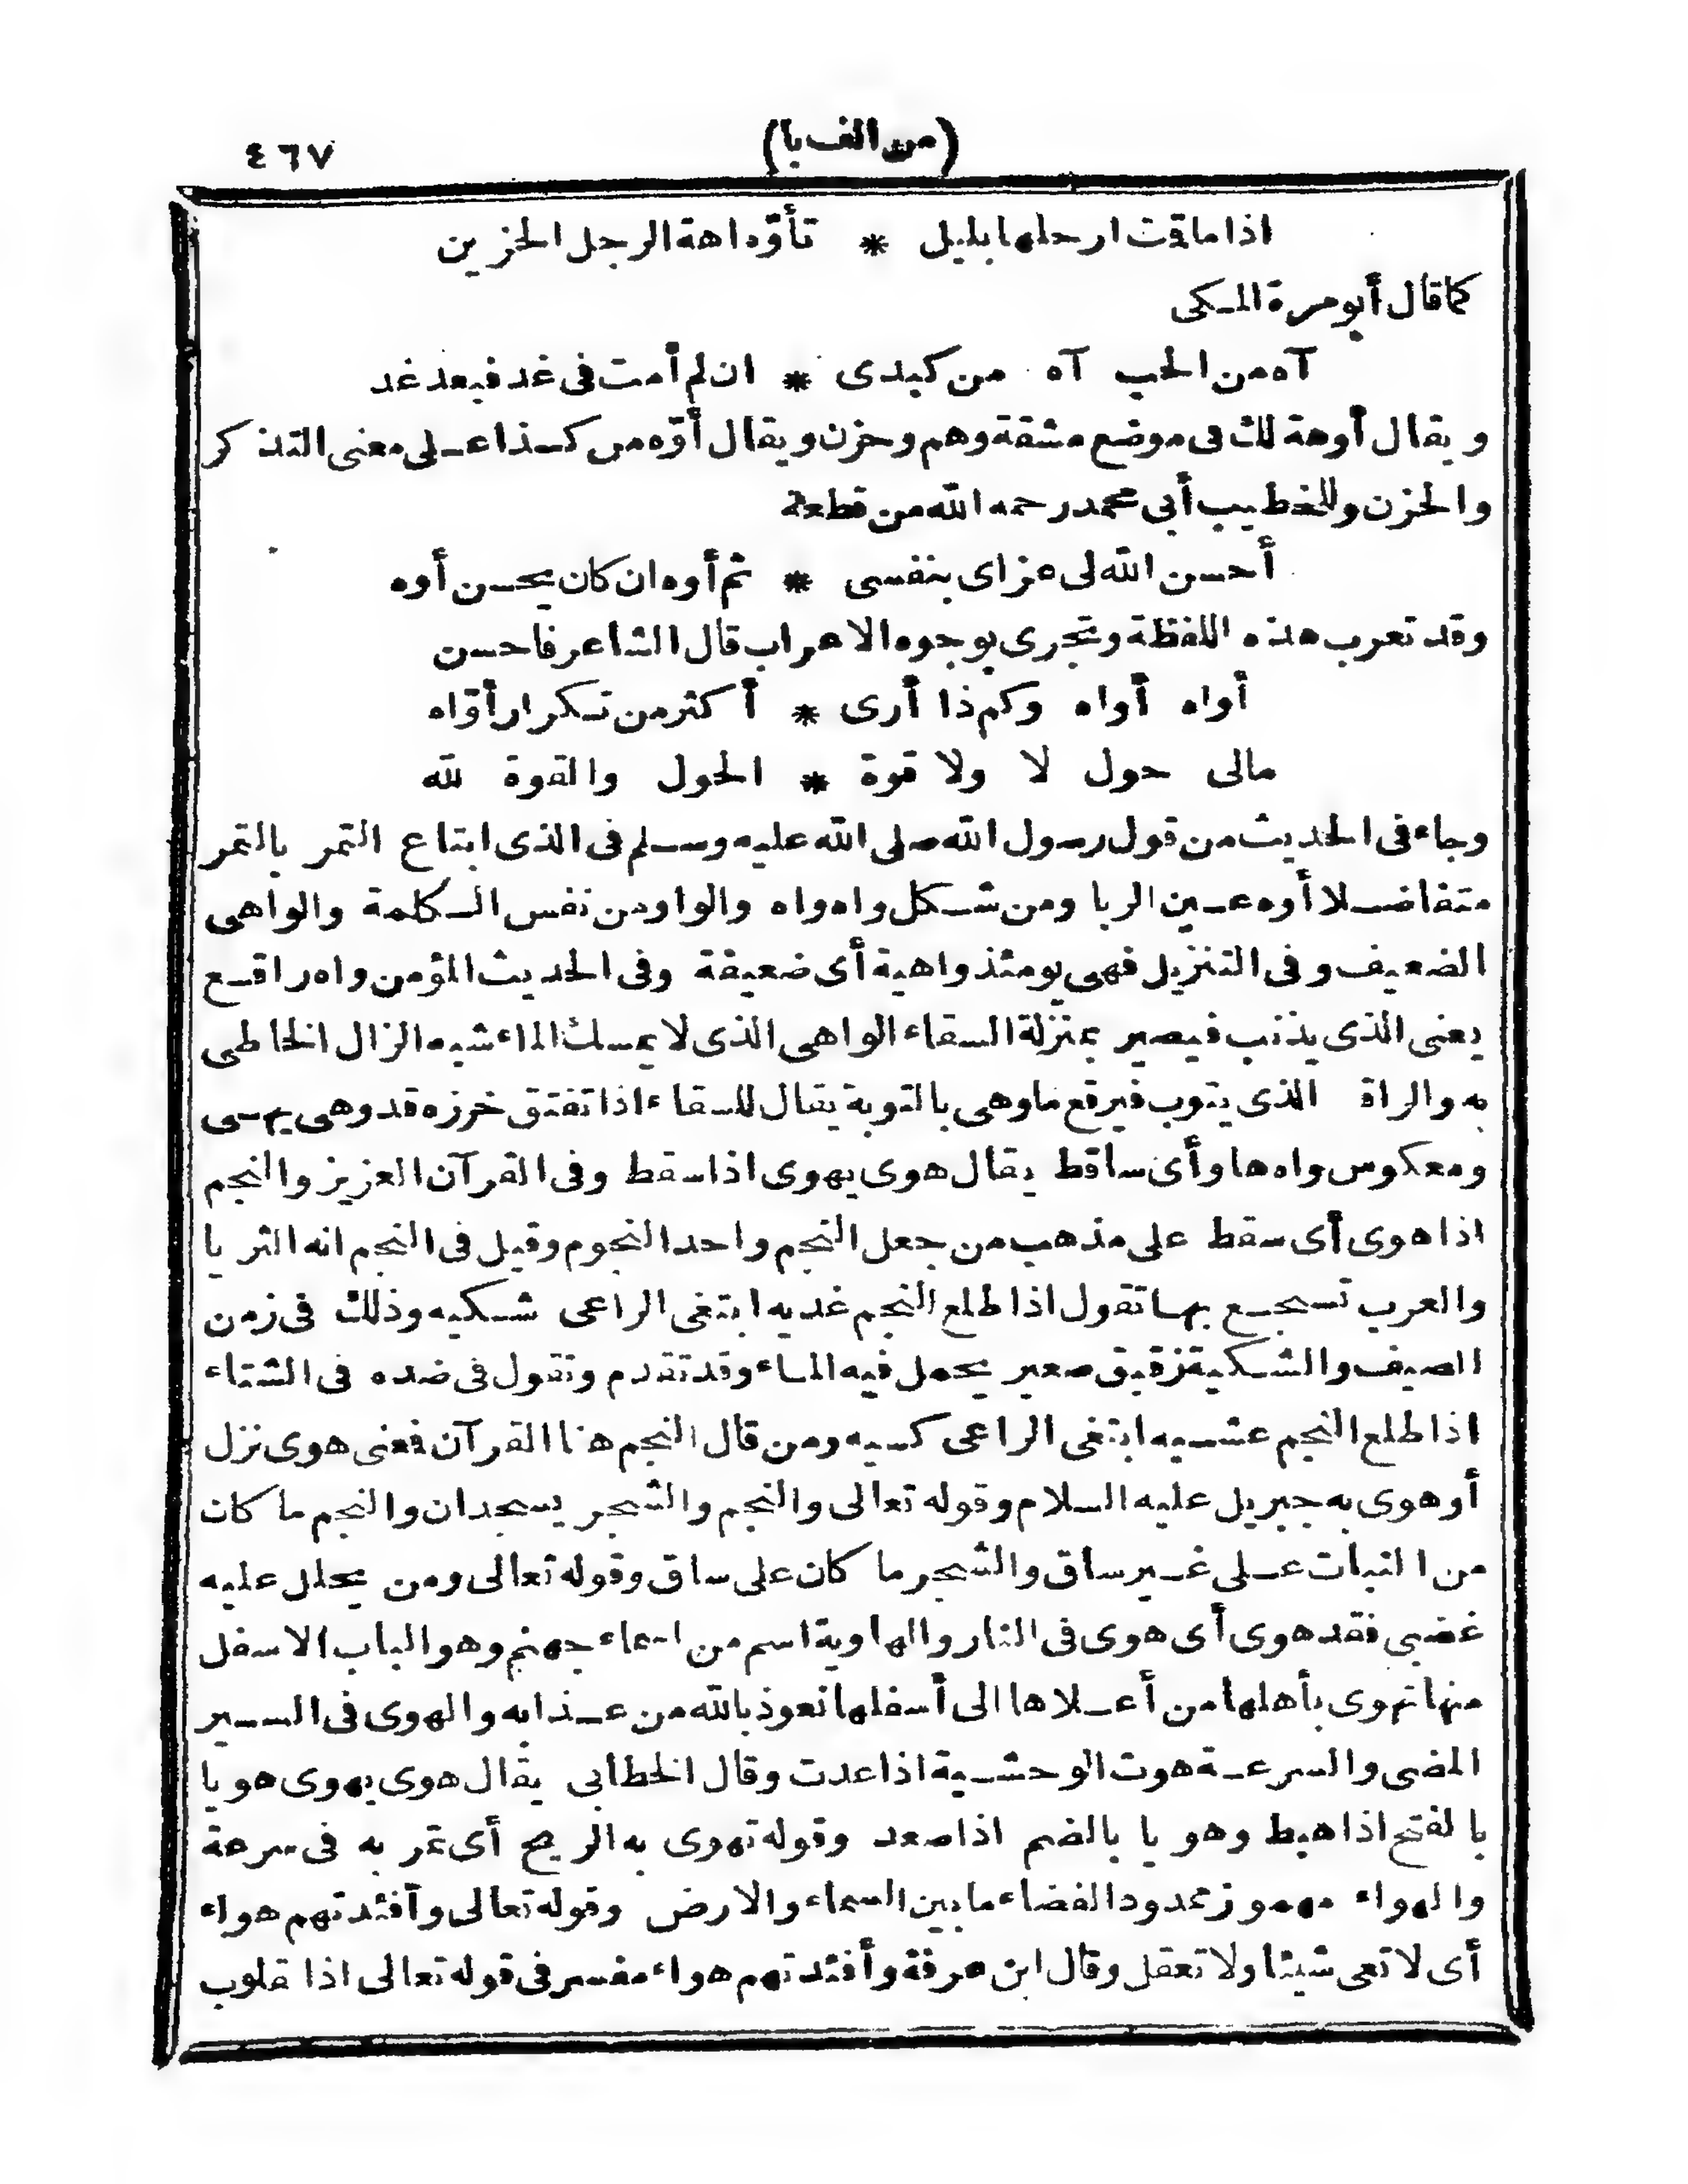 (من الف با)
٤٦٧
اذا ما قمت ارحلها بليل * تأوّه اهة الرجل الحزين
كما قال أبو مرة المكى
آه من الحب آه من كبدى * ان لم أمت فى غد فبعد غد
ويقال أوهة لك فى موضع مشقة وهم وحزن ويقال أوّه من كذا على معنى التذكر
والحزن وللخطيب أبى محمد رحمه الله من قطعة
أحسن الله لى عزاى بنفسى * ثم أوه ان كان يحسن أوه
وقد تعرب هذه اللفظة وتجرى بوجوه الاعراب قال الشاعر فاحسن
أواه أواه وكم ذا أرى * أكثر من تكرار أوّاه
مالى حول لا ولا قوة * الحول والقوة لله
وجاء فى الحديث من قول رسول الله صلى الله عليه وسلم فى الذى ابتاع التمر بالتمر
متفاضلا أوه عين الربا ومن شكل واه واه والواو من نفس الكلمة والواهى
الضعيف وفى التنزيل فهى يومئذ واهية أى ضعيفة وفى الحديث المؤمن واه راقع
يعنى الذى يذنب فيصير بمنزلة السقاء الواهى الذى لا يمسك الماء شبه الزال الخاطى
به والراق الذى يتوب فيرقع ما وهى بالتوبة يقال للسقاء اذا تفتق خرزه قد وهى يهسى
ومعكوس واه هاو أى ساقط يقال هوى يهوى اذا سقط وفى القرآن العزيز والنجم
اذا هوى أى سقط على مذهب من جعل النجم واحد النجوم وقيل فى النجم انه الثريا
والعرب تسجع بها تقول اذا طلع النجم غديه ابتغى الراعى شكيه وذلك فى زمن
الصيف والشكية زقيق صغير يحمل فيه الماء وقد تقدم وتقول فى ضده فى الشتاء
اذا طلع النجم عشيه ابتغى الراعى كسيه ومن قال النجم هنا القرآن فمعنى هوى نزل
أو هوى به جبريل عليه السلام وقوله تعالى والنجم والشجر يسجدان والنجم ما كان
من النبات على غير ساق والشجر ما كان على ساق وقوله تعالى ومن يحلل عليه
غضبى فقد هوى أى هوى فى النار والهاوية اسم من اسماء جهنم وهو الباب الاسفل
منها تهوى بأهلها من أعلاها الى أسفلها نعوذ بالله من عذابه والهوى فى السير
المضى والسرعة هوت الوحشية اذا عدت وقال الخطابى يقال هوى يهوى هويا
بالفتح اذا هبط وهويا بالضم اذا صعد وقوله تهوى به الريح أى تمر به فى سرعة
والهواء مهموز ممدود الفضاء ما بين السماء والارض وقوله تعالى وأفئدتهم هواء
أى لا تعى شيئا ولا تعقل وقال ابن عرفة وأفئدتهم هواء مفسر فى قوله تعالى اذا قلوب